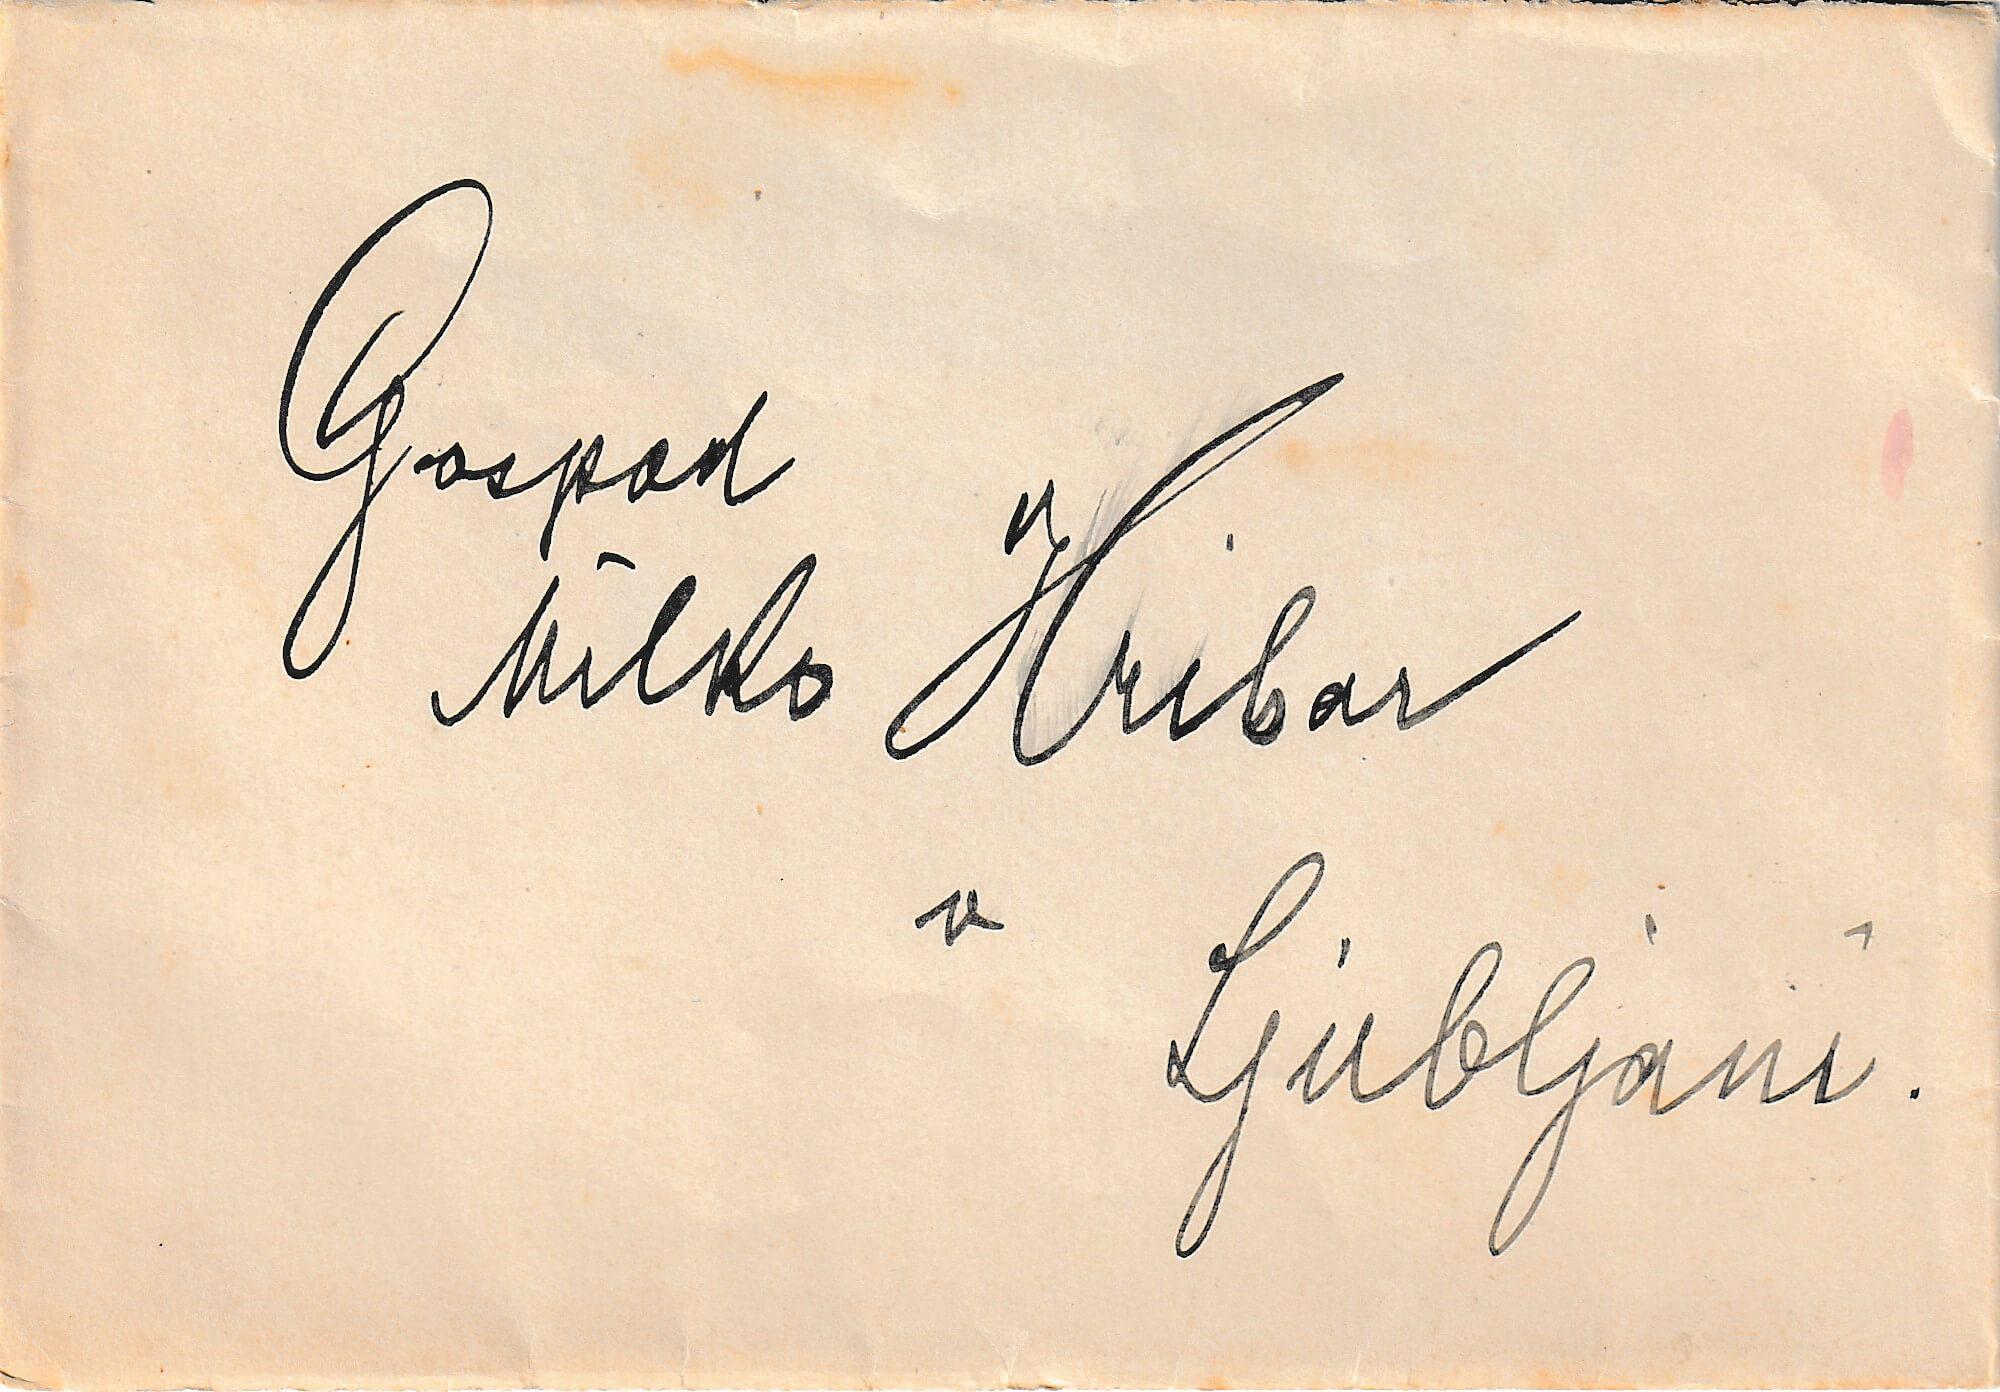 Gospod
Milko Hribar
v
Ljubljani.